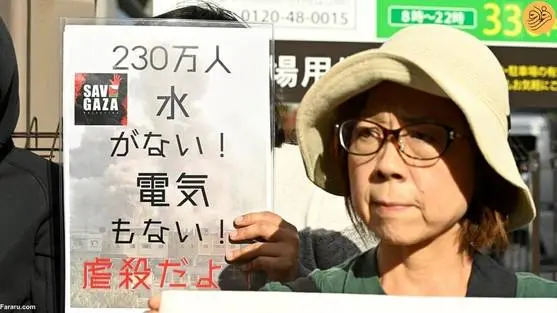 0120-48-0015
8時～22時
330
230万人
SAVE
GAZA
水
がない!
電気
もない!
虐殺だよ
場用
Fararu.com